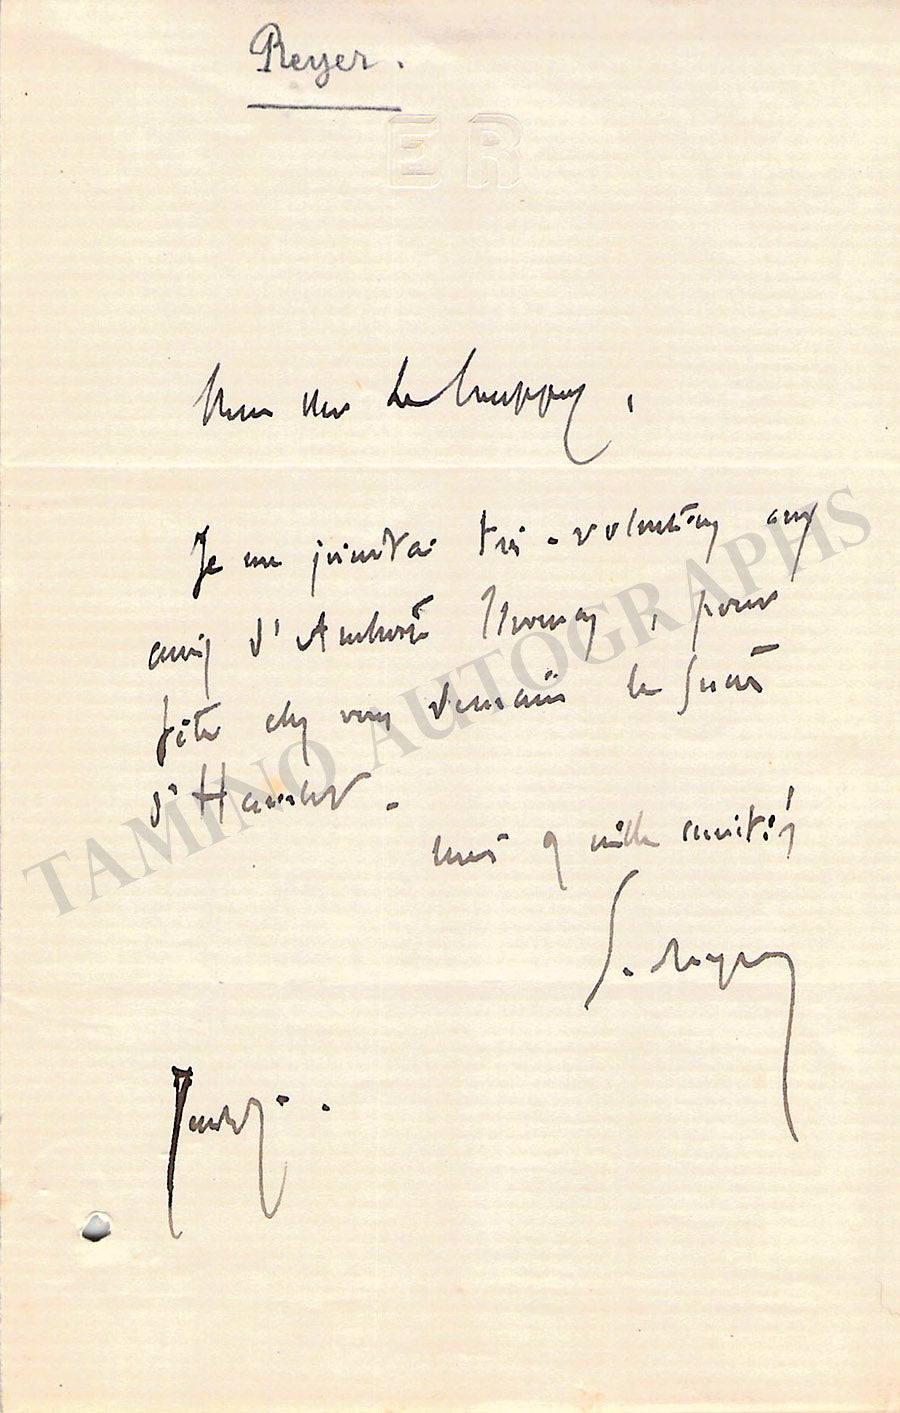 Reyer.
E R
Mon cher Le Couppey,
Je me joindrai très-volontiers aux
amis d'Ambroise Thomas, pour
fêter chez vous demain le succès
d'Hamlet.
mille amitiés
E. Reyer
Jeudi.
TAMINO AUTOGRAPHS